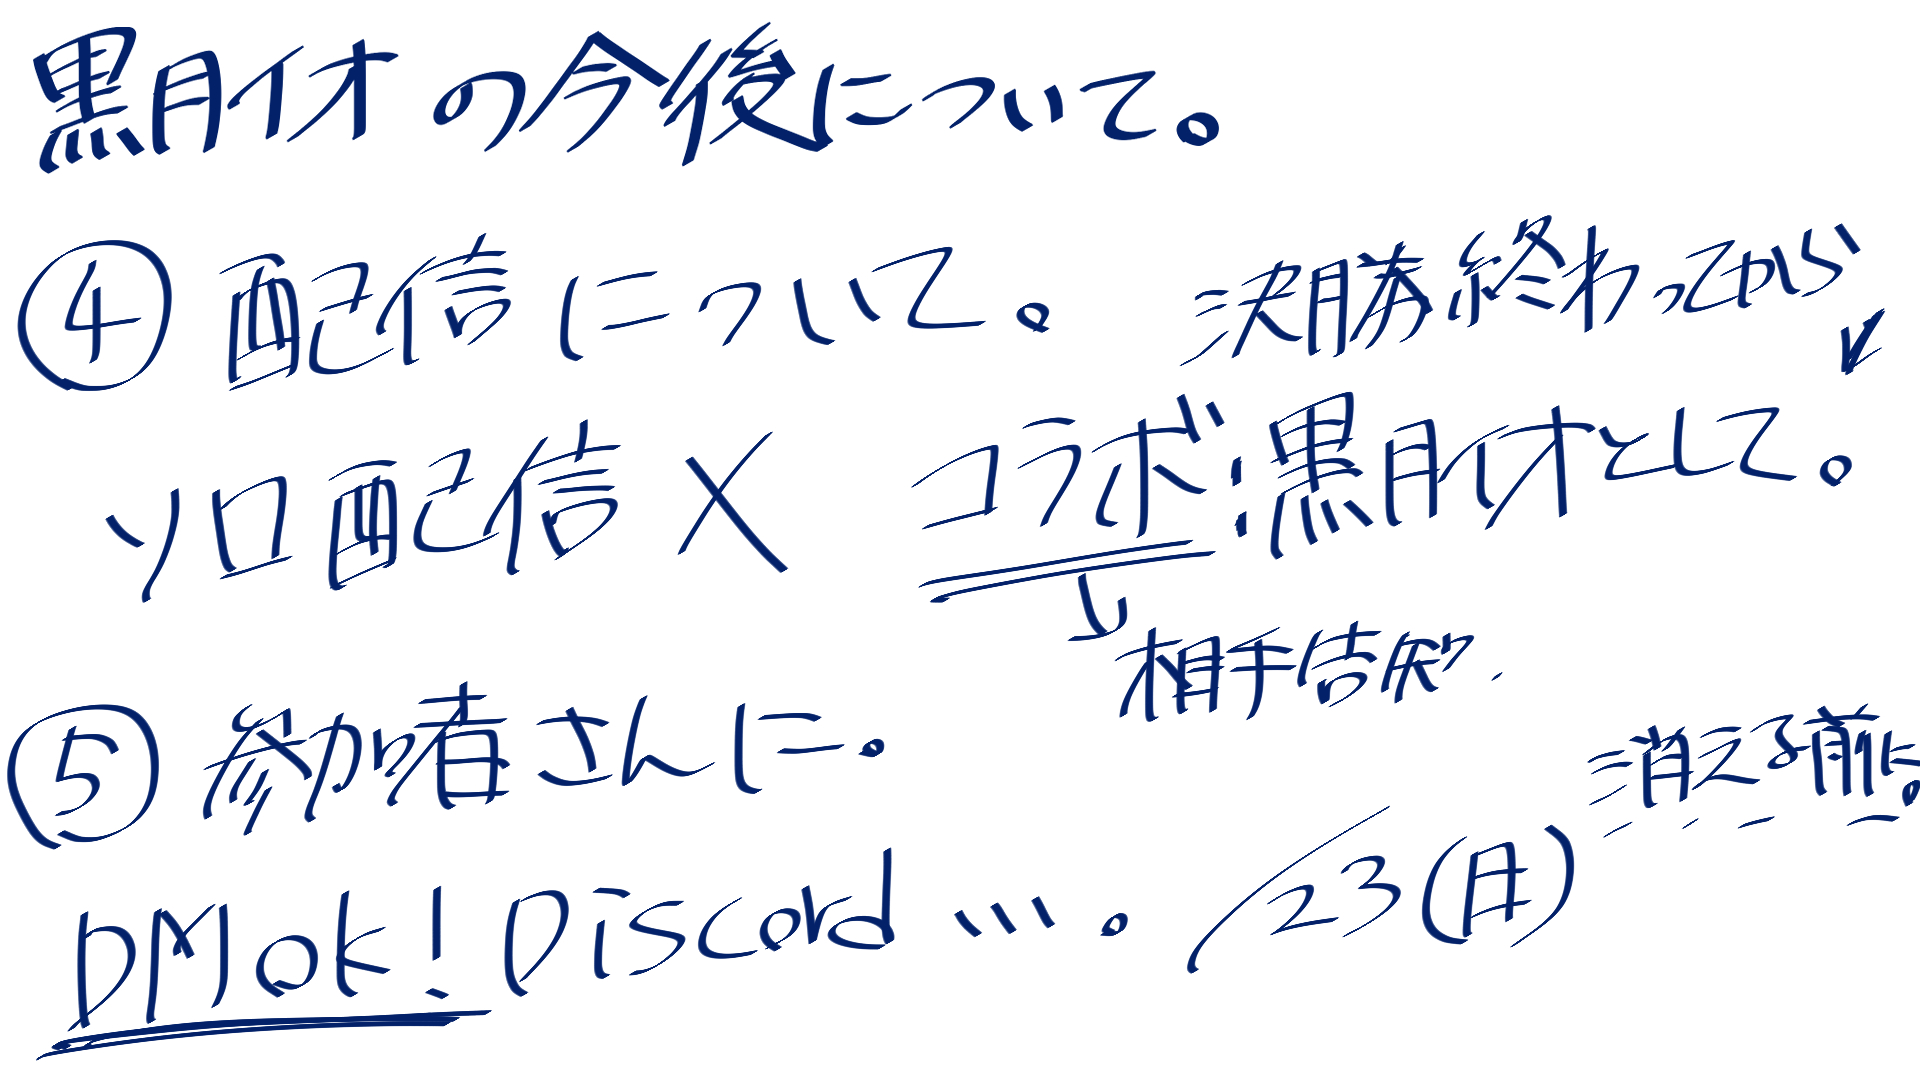 黒月イオの今後について。
④ 配信について。 決勝終わってから
ソロ配信 X コラボ:黒月イオとして。
相手告知.
⑤ 参加者さんに。
消える前に。
DMok! Discord ... 。 /23(月)